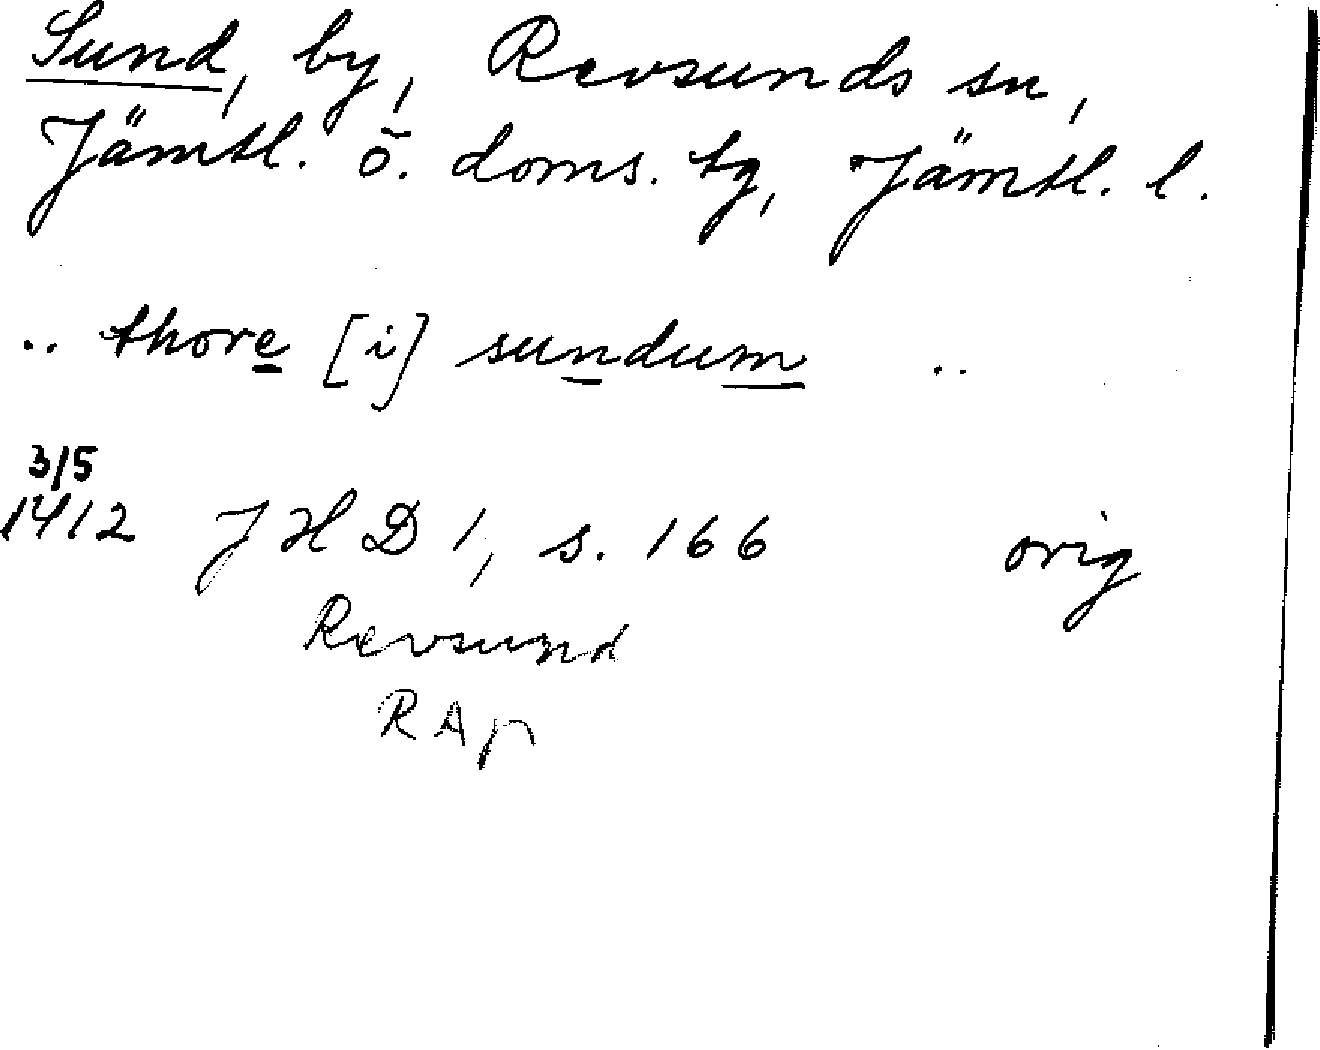 Sund, by, Revsunds sn,
Jämtl. ö. doms. tg, Jämtl. l.
.. thore [i] sundum ..
3/5
1412 JHD 1, s. 166 orig
Revsund
RAp